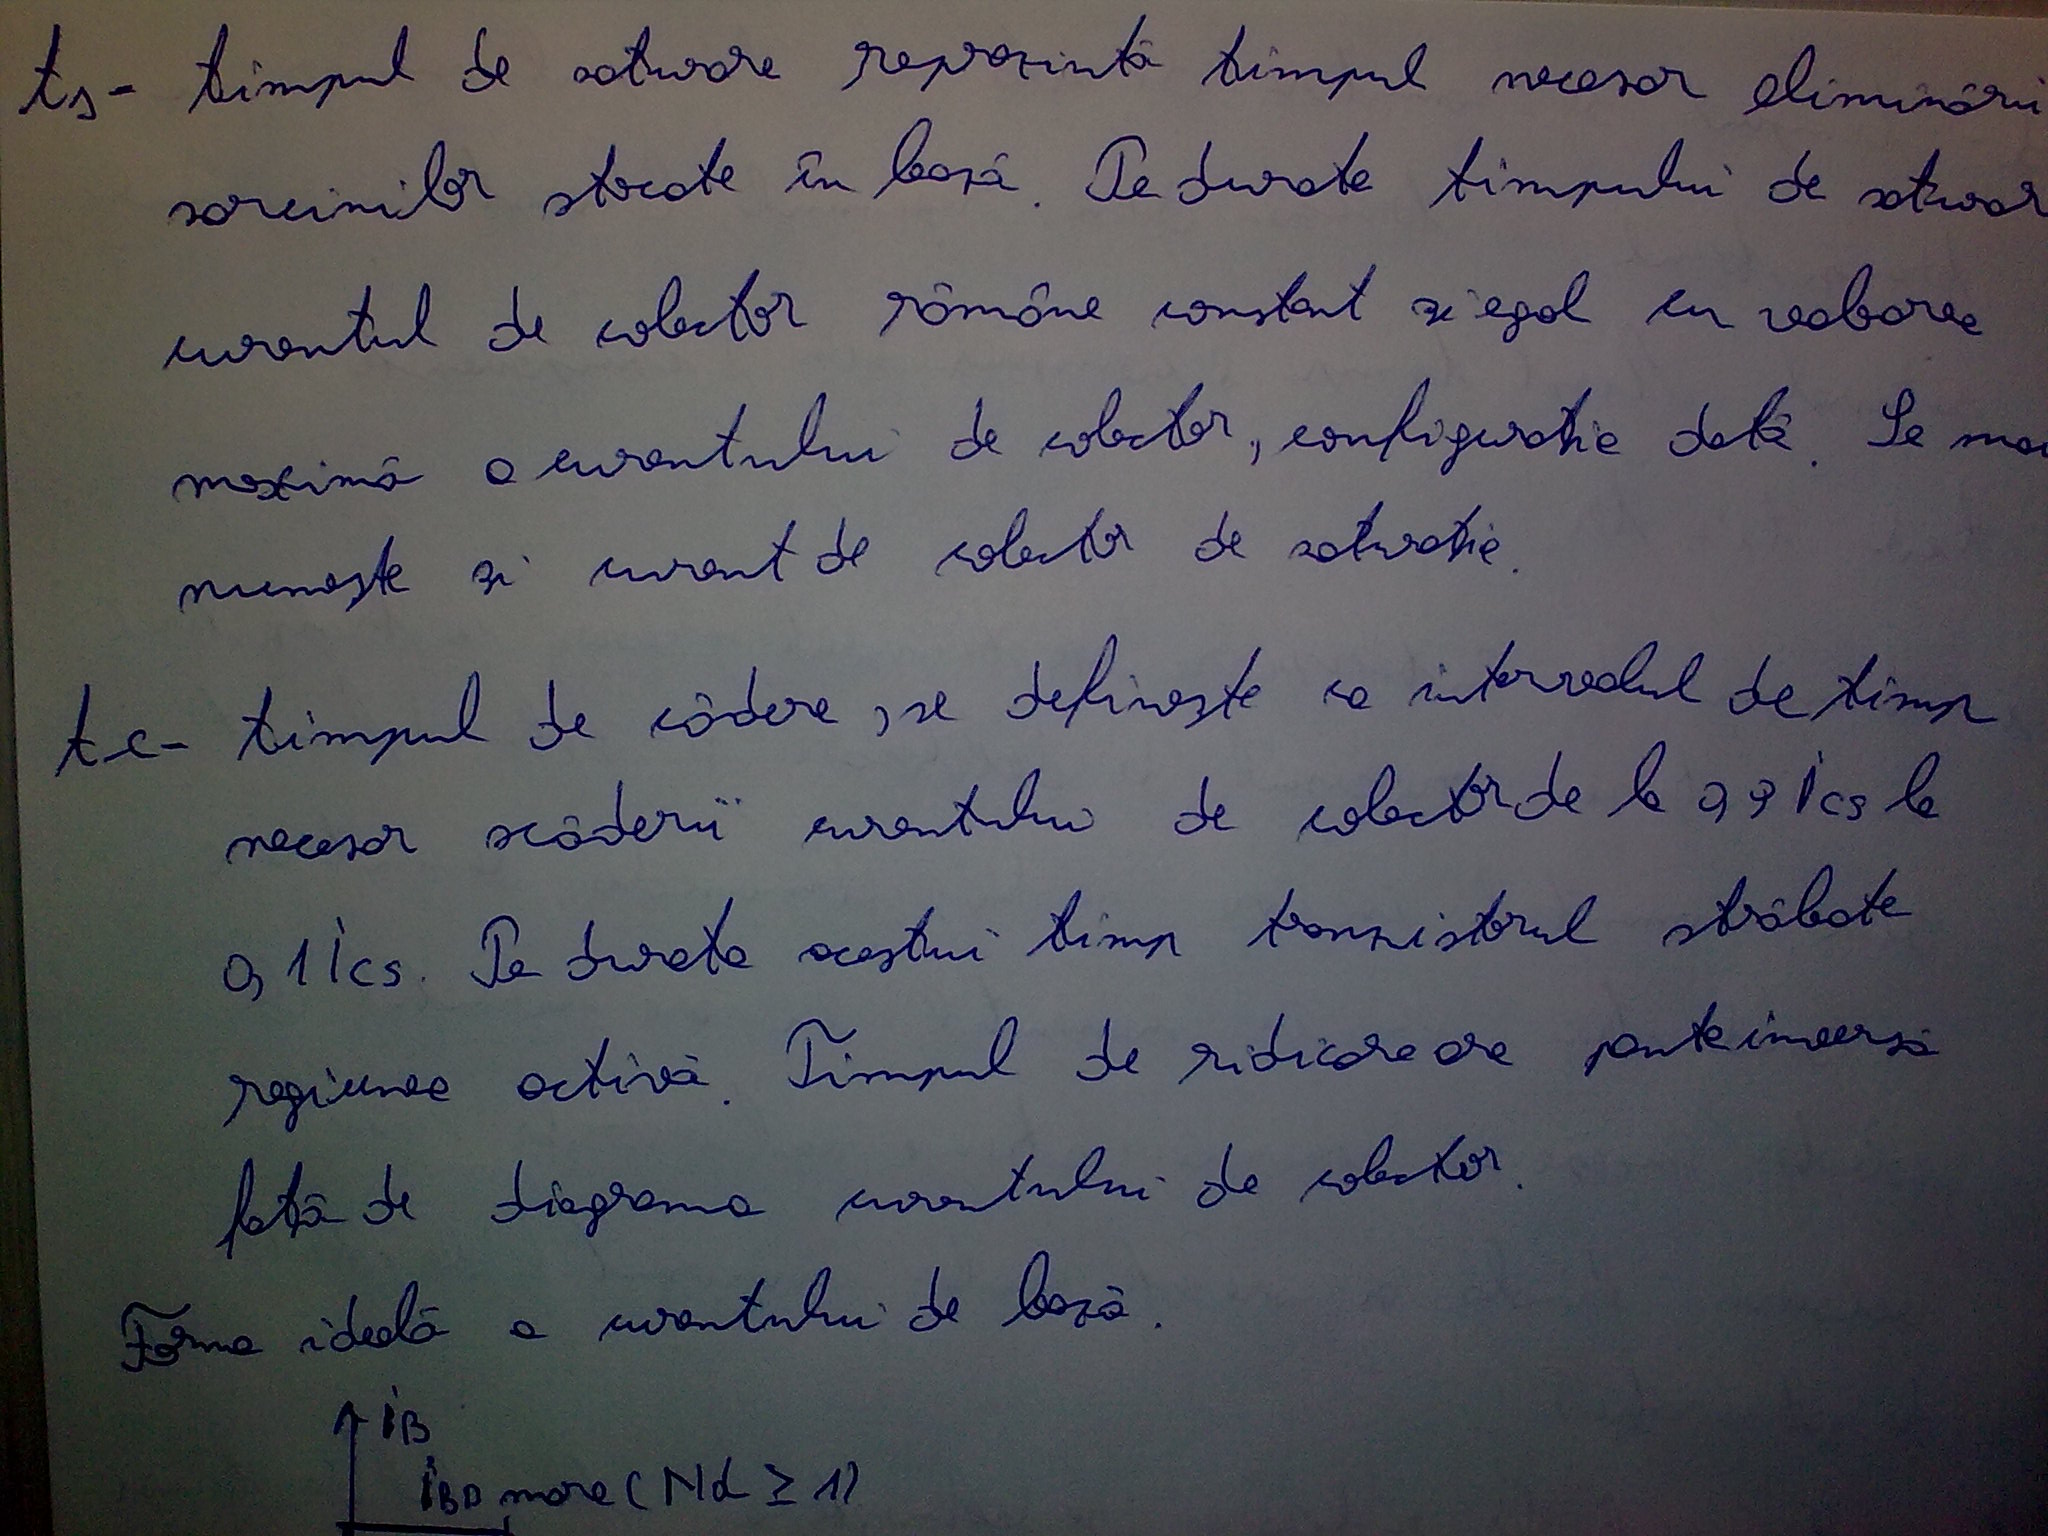 ts - timpul de saturare reprezintă timpul necesar eliminării
sarcinilor stocate în bază. Pe durata timpului de saturar
curentul de colector rămâne constant și egal cu valoarea
maximă a curentului de colector, configurație dată. Se mai
numește și curent de colector de saturație.
tc - timpul de cădere, se definește ca intervalul de timp
necesar scăderii curentului de colector de la 0,9 ics la
0,1 ics. Pe durata acestui timp tranzistorul străbate
regiunea activă. Timpul de ridicare are pante inversă
față de diagrama curentului de colector.
Forma ideală a curentului de bază.
iB
iBD mare (Nd ≥ 1)